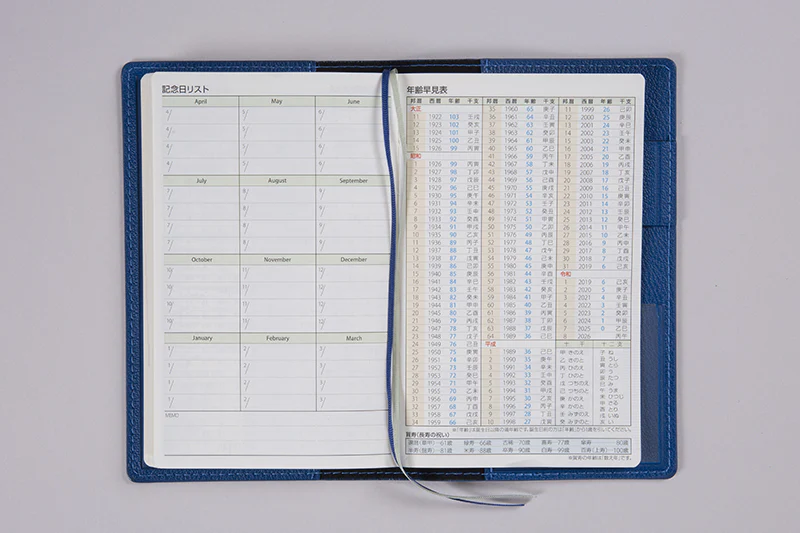 記念日リスト
April May June
4/ 5/ 6/
4/ 5/ 6/
4/ 5/ 6/
4/ 5/ 6/
July August September
7/ 8/ 9/
7/ 8/ 9/
7/ 8/ 9/
7/ 8/ 9/
October November December
10/ 11/ 12/
10/ 11/ 12/
10/ 11/ 12/
10/ 11/ 12/
January February March
1/ 2/ 3/
1/ 2/ 3/
1/ 2/ 3/
1/ 2/ 3/
MEMO
年齢早見表
邦暦 西暦 年齢 干支
大正
11 1922 103 壬戌
12 1923 102 癸亥
13 1924 101 甲子
14 1925 100 乙丑
15 1926 99 丙寅
昭和
1 1926 99 丙寅
2 1927 98 丁卯
3 1928 97 戊辰
4 1929 96 己巳
5 1930 95 庚午
6 1931 94 辛未
7 1932 93 壬申
8 1933 92 癸酉
9 1934 91 甲戌
10 1935 90 乙亥
11 1936 89 丙子
12 1937 88 丁丑
13 1938 87 戊寅
14 1939 86 己卯
15 1940 85 庚辰
16 1941 84 辛巳
17 1942 83 壬午
18 1943 82 癸未
19 1944 81 甲申
20 1945 80 乙酉
21 1946 79 丙戌
22 1947 78 丁亥
23 1948 77 戊子
24 1949 76 己丑
25 1950 75 庚寅
26 1951 74 辛卯
27 1952 73 壬辰
28 1953 72 癸巳
29 1954 71 甲午
30 1955 70 乙未
31 1956 69 丙申
32 1957 68 丁酉
33 1958 67 戊戌
34 1959 66 己亥
邦暦 西暦 年齢 干支
35 1960 65 庚子
36 1961 64 辛丑
37 1962 63 壬寅
38 1963 62 癸卯
39 1964 61 甲辰
40 1965 60 乙巳
41 1966 59 丙午
42 1967 58 丁未
43 1968 57 戊申
44 1969 56 己酉
45 1970 55 庚戌
46 1971 54 辛亥
47 1972 53 壬子
48 1973 52 癸丑
49 1974 51 甲寅
50 1975 50 乙卯
51 1976 49 丙辰
52 1977 48 丁巳
53 1978 47 戊午
54 1979 46 己未
55 1980 45 庚申
56 1981 44 辛酉
57 1982 43 壬戌
58 1983 42 癸亥
59 1984 41 甲子
60 1985 40 乙丑
61 1986 39 丙寅
62 1987 38 丁卯
63 1988 37 戊辰
64 1989 36 己巳
平成
1 1989 36 己巳
2 1990 35 庚午
3 1991 34 辛未
4 1992 33 壬申
5 1993 32 癸酉
6 1994 31 甲戌
7 1995 30 乙亥
8 1996 29 丙子
9 1997 28 丁丑
10 1998 27 戊寅
邦暦 西暦 年齢 干支
11 1999 26 己卯
12 2000 25 庚辰
13 2001 24 辛巳
14 2002 23 壬午
15 2003 22 癸未
16 2004 21 甲申
17 2005 20 乙酉
18 2006 19 丙戌
19 2007 18 丁亥
20 2008 17 戊子
21 2009 16 己丑
22 2010 15 庚寅
23 2011 14 辛卯
24 2012 13 壬辰
25 2013 12 癸巳
26 2014 11 甲午
27 2015 10 乙未
28 2016 9 丙申
29 2017 8 丁酉
30 2018 7 戊戌
31 2019 6 己亥
令和
1 2019 6 己亥
2 2020 5 庚子
3 2021 4 辛丑
4 2022 3 壬寅
5 2023 2 癸卯
6 2024 1 甲辰
7 2025 0 乙巳
8 2026 丙午
十干 十二支
甲 きのえ 子 ね
乙 きのと 丑 うし
丙 ひのえ 寅 とら
丁 ひのと 卯 う
戊 つちのえ 辰 たつ
己 つちのと 巳 み
庚 かのえ 午 うま
辛 かのと 未 ひつじ
壬 みずのえ 申 さる
癸 みずのと 酉 とり
戌 いぬ
亥 い
賀寿(長寿の祝い)
還暦(華甲)—61歳 緑寿—66歳 古稀—70歳 喜寿—77歳 傘寿—80歳
半寿(盤寿)—81歳 米寿—88歳 卒寿—90歳 白寿—99歳 百寿(上寿)—100歳
※賀寿の年齢は「数え年」です。